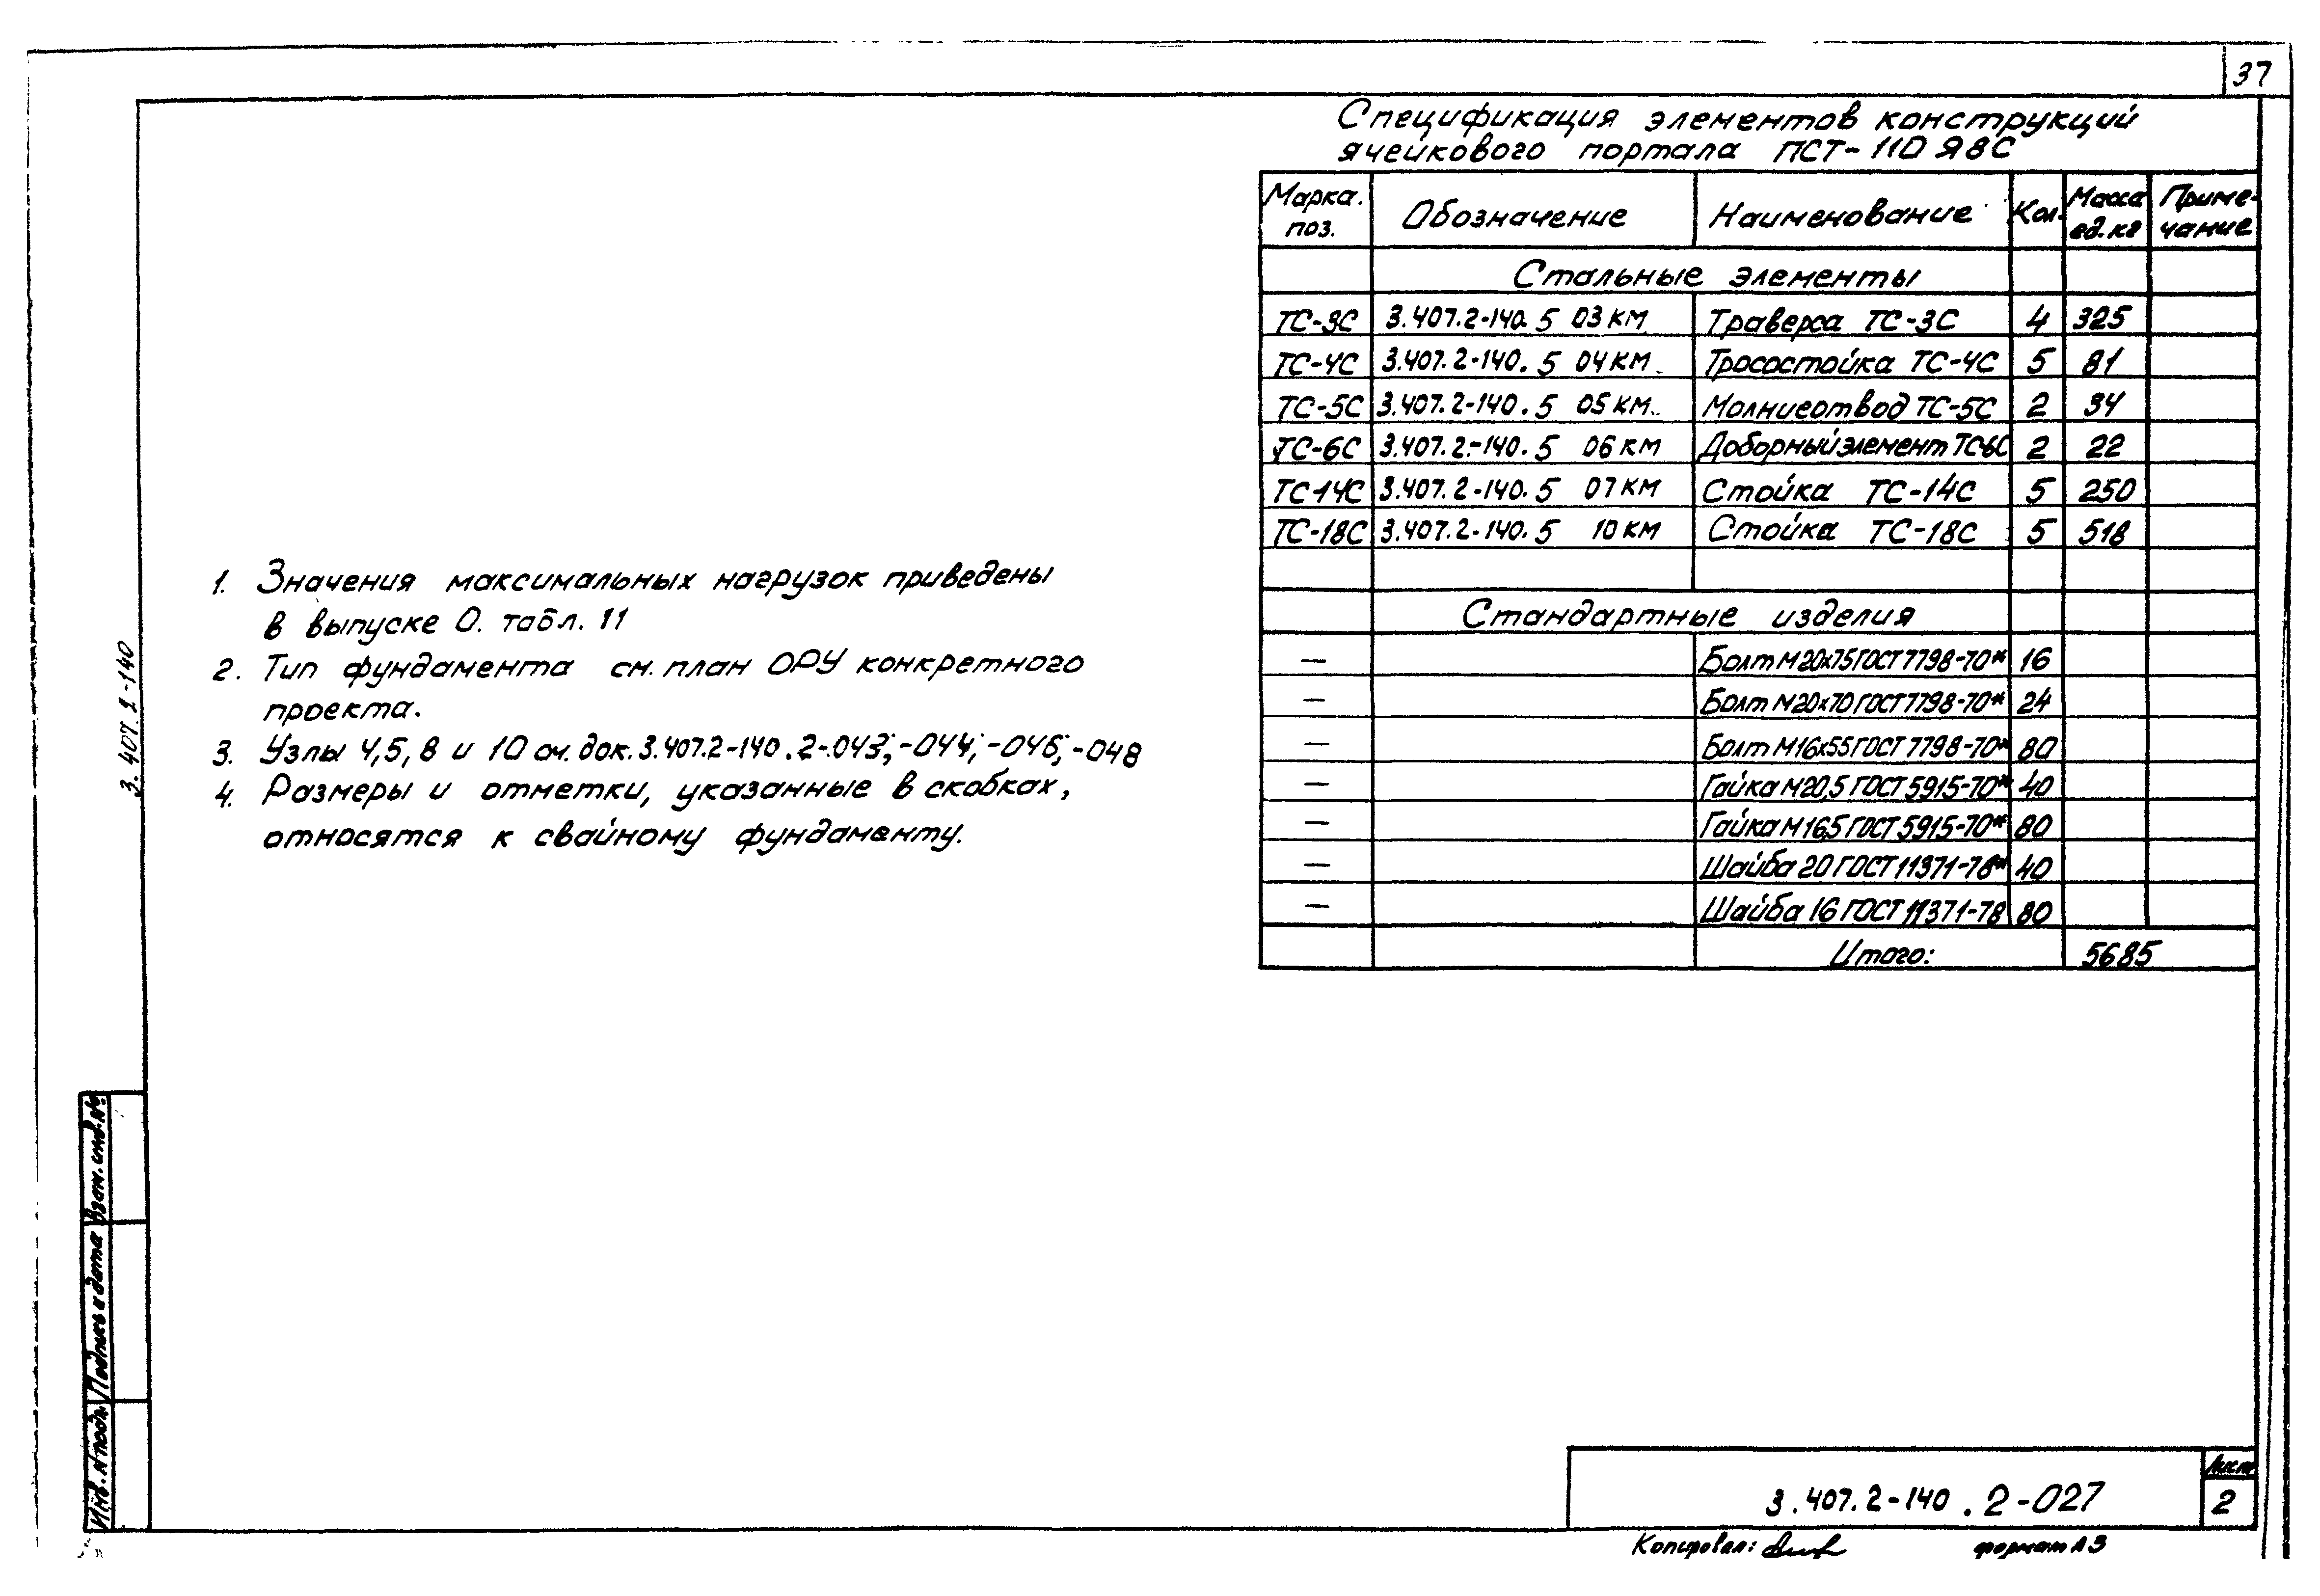 37
Спецификация элементов конструкций
ячейкового портала ПСТ-110 Я8С
Марка. поз. Обозначение Наименование Кол. Масса ед. кг Приме- чание
Стальные элементы
ТС-3С 3.407.2-140.5 03 КМ Траверса ТС-3С 4 325
ТС-4С 3.407.2-140.5 04 КМ Тросостойка ТС-4С 5 81
ТС-5С 3.407.2-140.5 05 КМ. Молниеотвод ТС-5С 2 34
ТС-6С 3.407.2-140.5 06 КМ Доборный элемент ТС-6С 2 22
ТС-14С 3.407.2-140.5 07 КМ Стойка ТС-14С 5 250
ТС-18С 3.407.2-140.5 10 КМ Стойка ТС-18С 5 518
Стандартные изделия
— Болт М20х75 ГОСТ 7798-70* 16
— Болт М20х70 ГОСТ 7798-70* 24
— Болт М16х55 ГОСТ 7798-70* 80
— Гайка М20,5 ГОСТ 5915-70* 40
— Гайка М16,5 ГОСТ 5915-70* 80
— Шайба 20 ГОСТ 11371-78* 40
— Шайба 16 ГОСТ 11371-78 80
Итого: 5685
1. Значения максимальных нагрузок приведены
в выпуске 0. табл. 11
2. Тип фундамента см. план ОРУ конкретного
проекта.
3. Узлы 4,5,8 и 10 см. док. 3.407.2-140.2-043; -044; -046; -048
4. Размеры и отметки, указанные в скобках,
относятся к свайному фундаменту.
3.407.2-140
Взам. инв. №
Подпись и дата
Инв. № подл.
3.407.2-140.2-027
Лист
2
Копировал:
формат А3